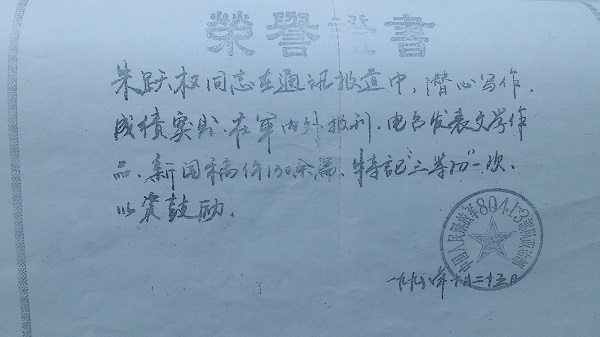 榮譽證書
朱跃权同志在通讯报道中，潜心写作，
成绩突出，在军内外报刊、电台发表文学作
品、新闻稿件130余篇，特记"三等功"一次，
以资鼓励。
中国人民解放军80413部队政治处
一九九〇年十月二十五日